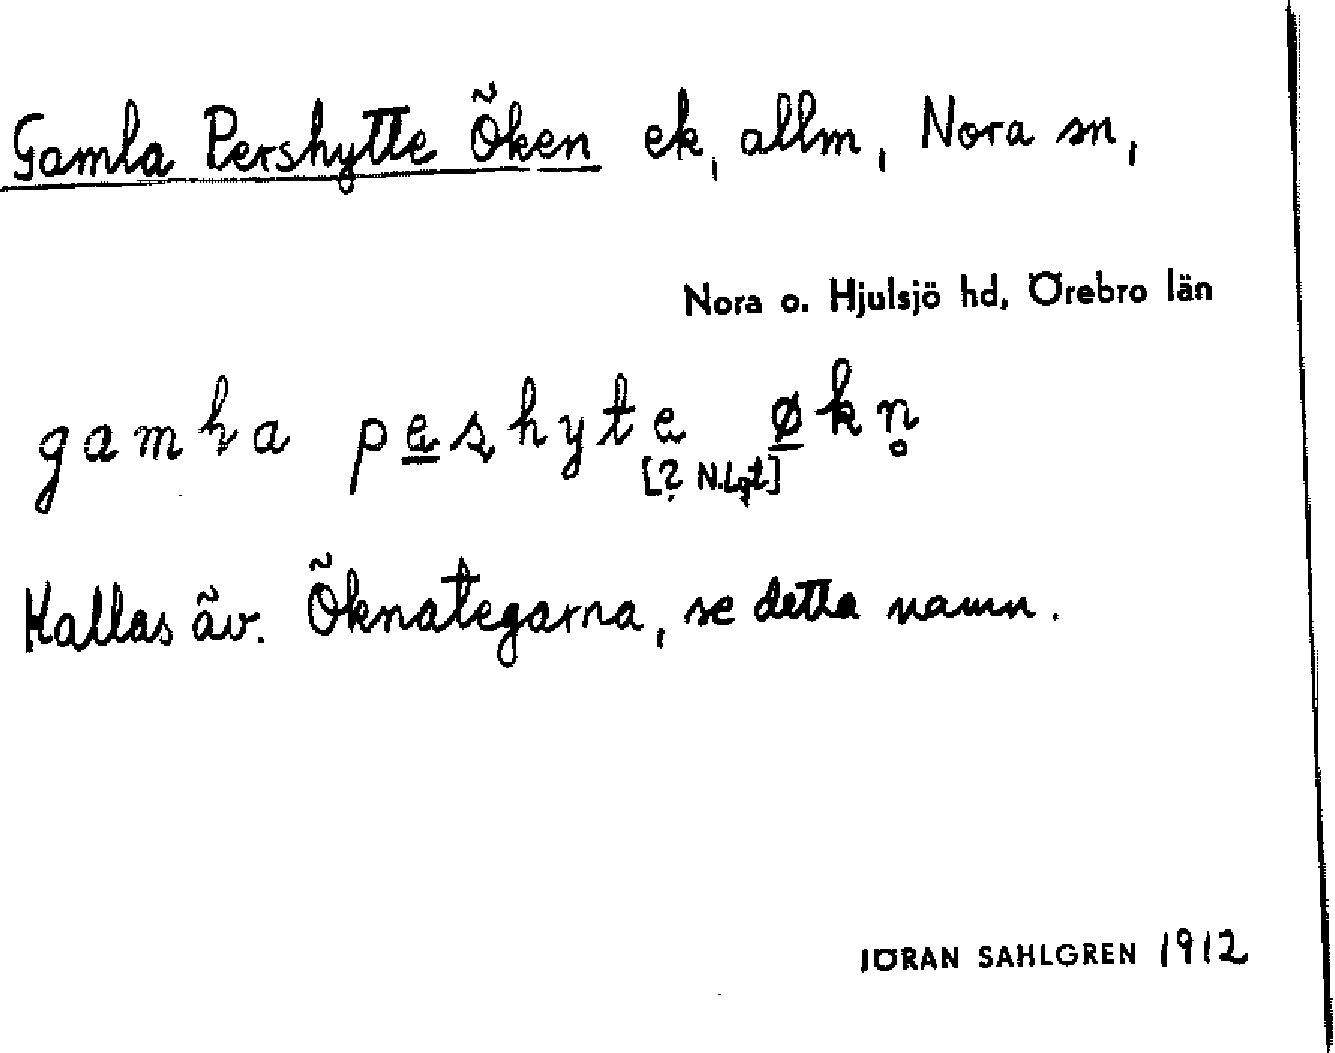 Gamla Pershytte Öken ek, allm, Nora sn,
Nora o. Hjulsjö hd, Örebro län
gamla peshyte økn̥
[? N.Lgt]
Kallas äv. Öknategarna, se detta namn.
JÖRAN SAHLGREN 1912